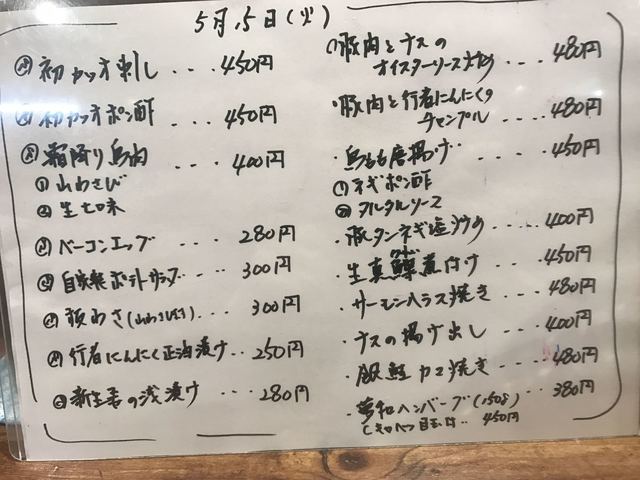 5月15日(火)
初カツオ刺し...450円
初カツオポン酢...450円
霜降り馬肉...400円
①山わさび
②生七味
ベーコンエッグ...280円
自家製ポテトサラダ....300円
板わさ(山わさび付)...300円
行者にんにく正油漬け..250円
新生姜の浅漬け...280円
豚肉とナスの
オイスターソース炒め...480円
・豚肉と行者にんにくの
チャンプル....480円
・鳥もも唐揚げ....450円
①ネギポン酢
②タルタルソース
・豚タンネギ塩炒め...400円
・生真鰈煮付け....450円
・サーモンハラス焼き...480円
・ナスの揚げ出し...400円
・銀鮭カマ焼き...480円
ハンバーグ(150g)..380円
目玉付..450円